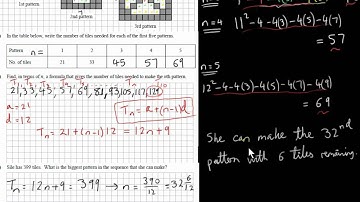 1st pattern
2nd pattern
3rd pattern
In the table below, write the number of tiles needed for each of the first five patterns.
Pattern n= 1 2 3 4 5
No. of tiles 21 33 45 57 69
Find, in terms of n, a formula that gives the number of tiles needed to make the nth pattern.
21, 33, 45, 57, 69, 81, 93, 105, 117, 129
a = 21
d = 12
Tn = a + (n-1)d
Tn = 21 + (n-1)12 = 12n + 9
Síle has 399 tiles. What is the biggest pattern in the sequence that she can make?
Tn = 12n + 9 = 399 → n = 390/12 = 32 6/12
n=4 11² - 4 - 4(3) - 4(5) - 4(7)
= 57
n=5
12² - 4 - 4(3) - 4(5) - 4(7) - 4(9)
= 69
She can make the 32nd
pattern with 6 tiles remaining.